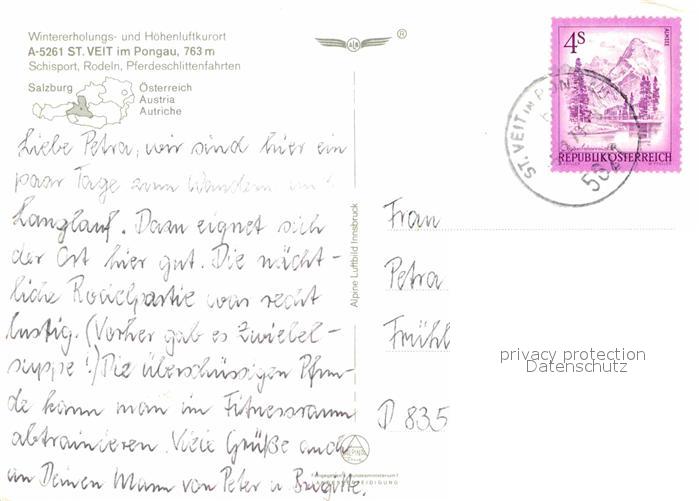 Wintererholungs- und Höhenluftkurort
A-5261 ST. VEIT im Pongau, 763 m
Schisport, Rodeln, Pferdeschlittenfahrten
Salzburg
Österreich
Austria
Autriche
®
4S
ALMSEE
REPUBLIK ÖSTERREICH
ST. VEIT im PON
Liebe Petra, wir sind hier ein
paar Tage zum Wandern
Langlauf. Dazu eignet sich
der Ort hier gut. Die nächt-
liche Rodelpartie war recht
lustig. (Vorher gab es Zwiebel-
suppe!) Die überschüssigen Pfun-
de kann man im Fitnessraum
abtrainieren. Viele Grüße auch
an Deinen Mann von Peter u Brigitte.
Alpine Luftbild Innsbruck
Frau
Petra
Frühl
D 835
privacy protection
Datenschutz
ALPINE